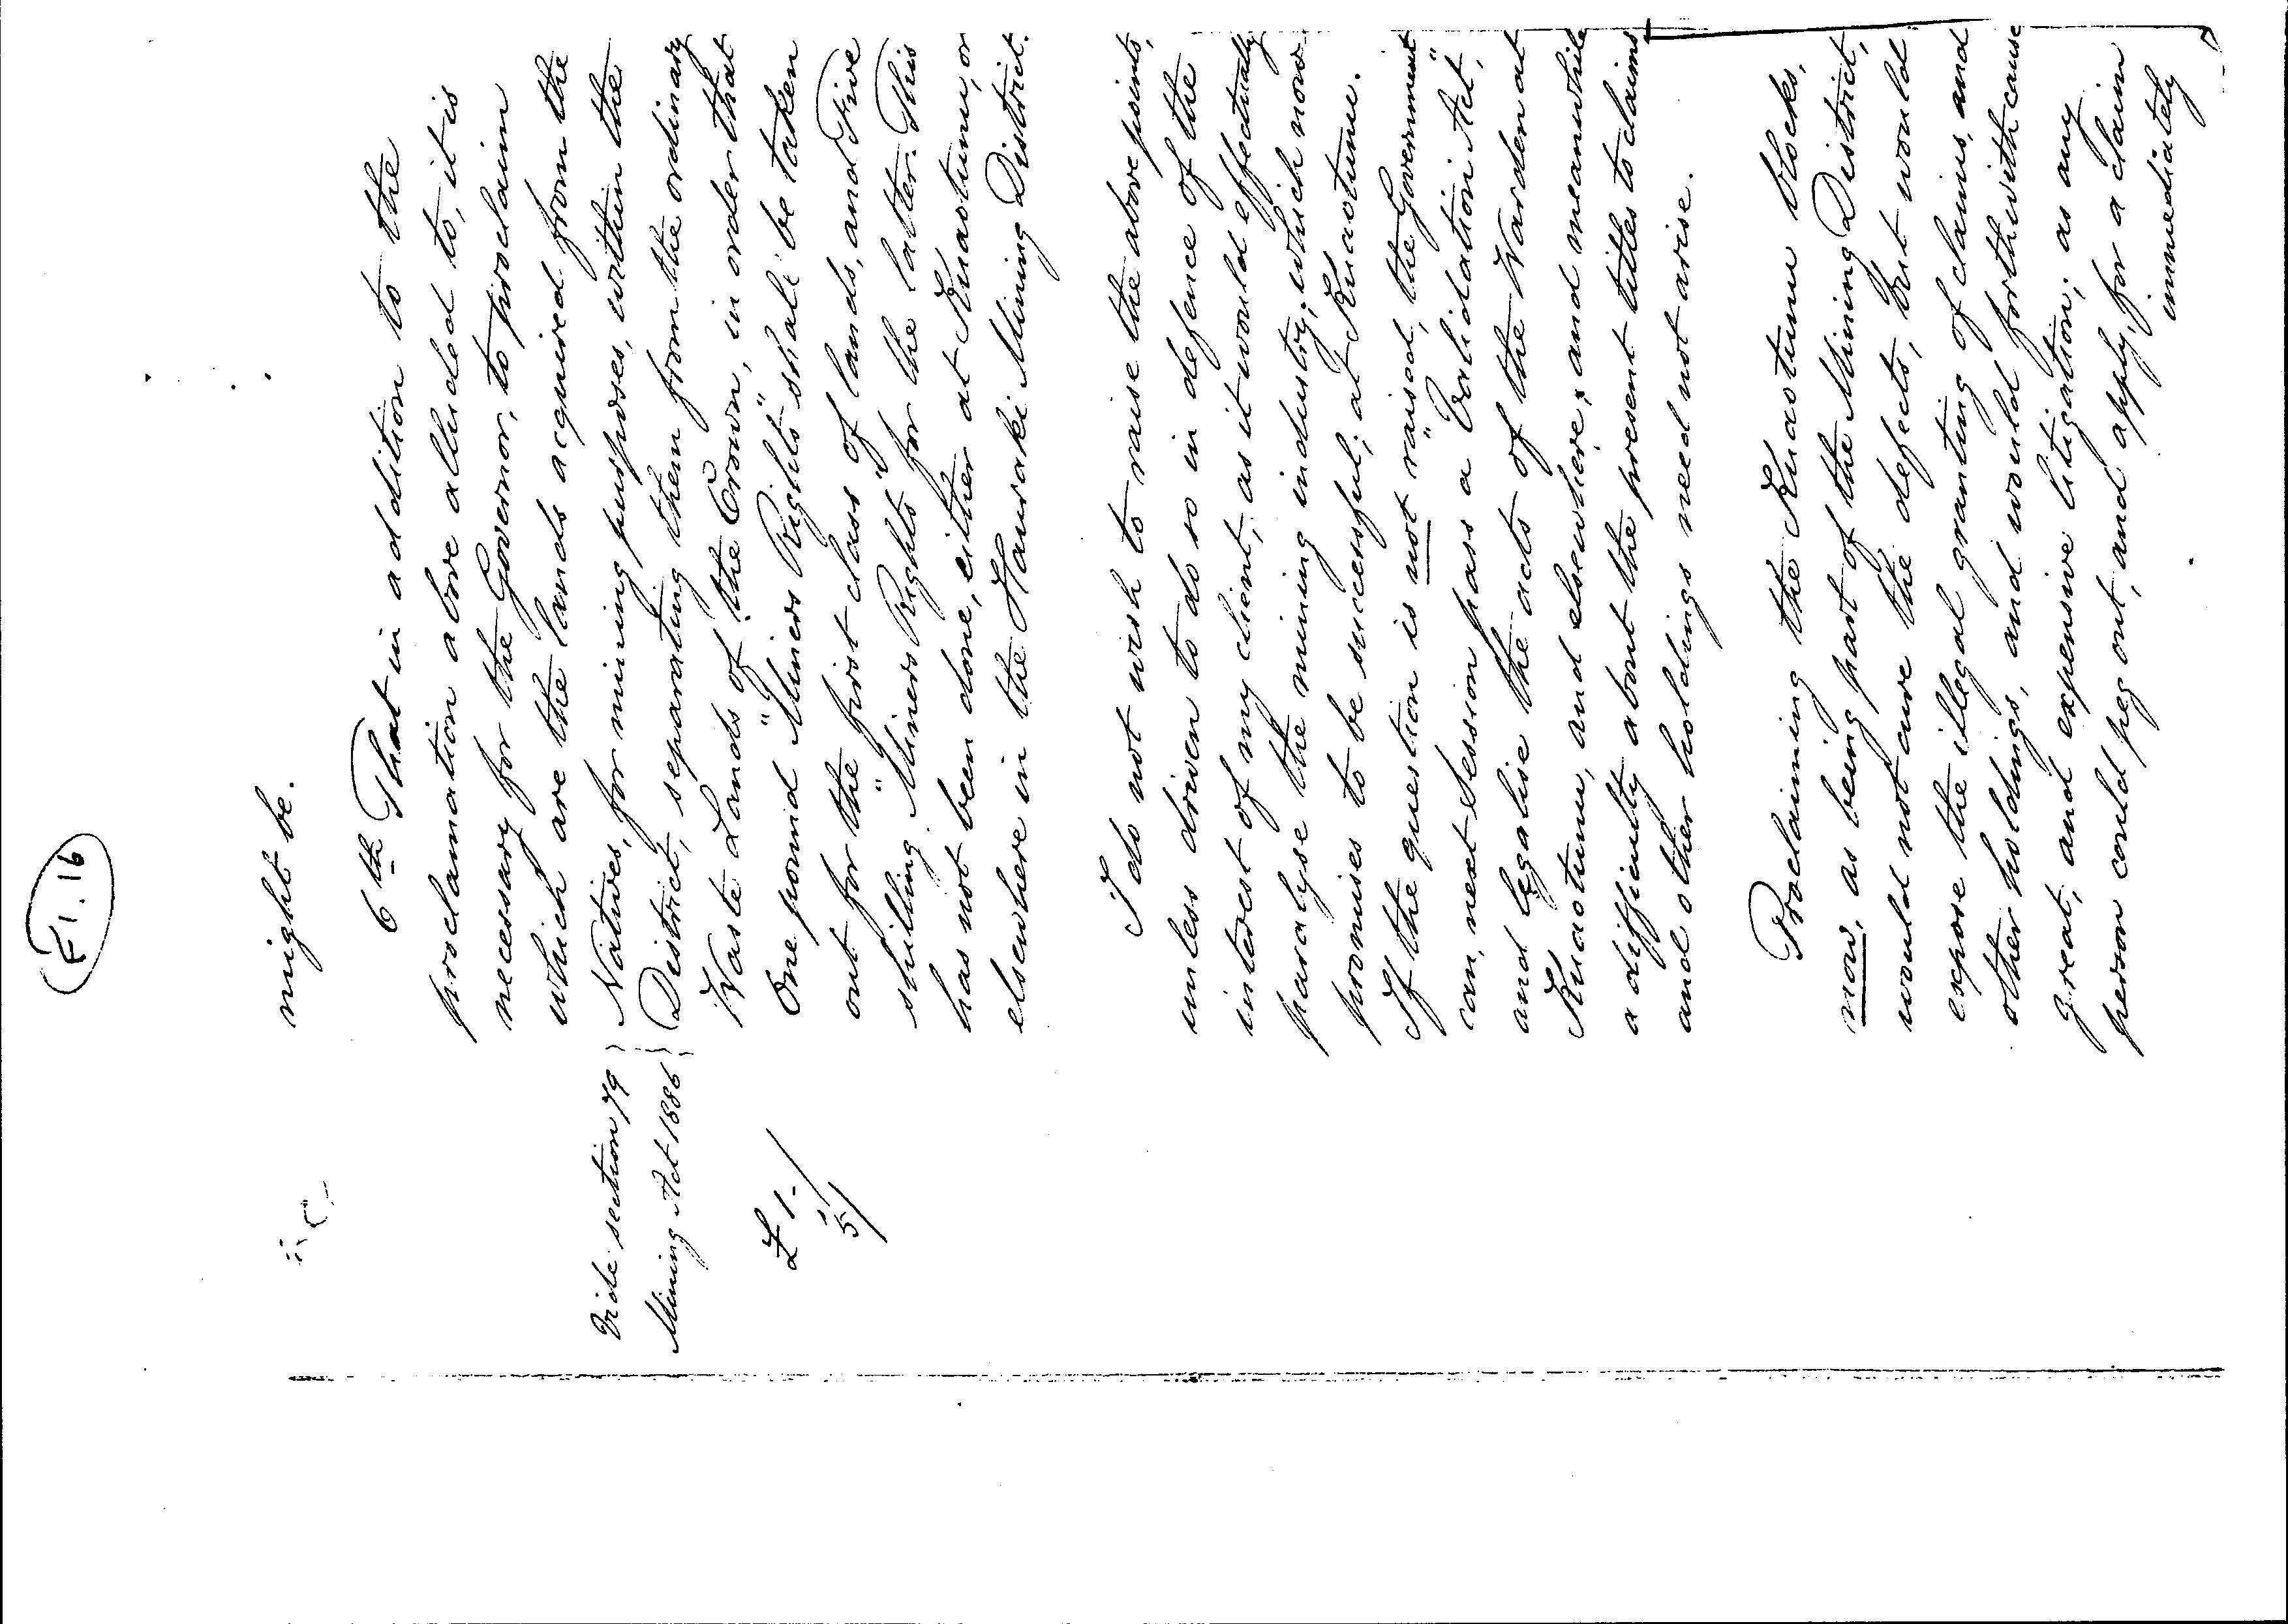 F1.16
might be.
6th That in addition to the
proclamation above alluded to, it is
necessary for the Governor, to proclaim
which are the lands acquired from the
Vide section 79 } Natives, for mining purposes, within the
Mining Act 1886 } District, separating them from the ordinary
Waste Lands of the Crown, in order that
£1.- One pound "Miners Rights" shall be taken
5/ out for the first class of lands, and Five
shilling "Miners Rights" for the latter. This
has not been done, either at Kuaotunu, or
elsewhere in the Hauraki Mining District.
I do not wish to raise the above points,
unless driven to do so in defence of the
interest of my client, as it would effectually
paralyse the mining industry, which now
promises to be successful, at Kuaotunu.
If the question is not "raised", the Government
can, next Session pass a "Validation Act",
and legalise the acts of the Warden at
Kuaotunu, and elsewhere, and meanwhile
a difficulty about the present titles to claims
and other holdings need not arise.
Proclaiming the Kuaotunu blocks,
now, as being part of the Mining District,
would not cure the defects, but would
expose the illegal granting of claims, and
other holdings, and would forthwith cause
great, and expensive litigation; as any
person could peg out, and apply, for a claim
immediately